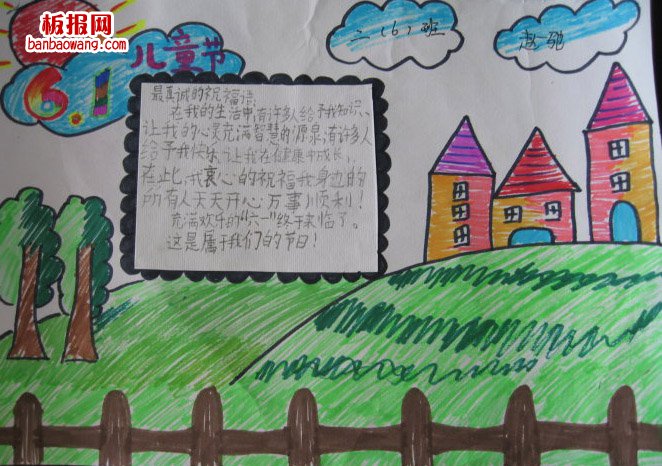 板报网
banbaowang.com
6.1
儿童节
三(6)班
赵驰
最真诚的祝福语
在我的生活中,有许多人给予我知识、
让我的心灵充满智慧的源泉,有许多人
给予我快乐,让我在健康中成长,
在此,我衷心的祝福我身边的
所有人天天开心万事顺利!
充满欢乐的“六一”终于来临了。
这是属于我们的节日!